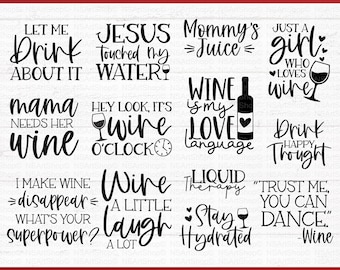 LET ME
Drink
ABOUT IT
JESUS
Touched My
WATER
Mommy's
Juice
JUST A
girl
WHO
LOVES
wine
mama
NEEDS HER
wine
HEY LOOK, IT'S
wine
O'CLOCK
WINE
is my
LOVE
language
Drink
HAPPY
Thought
I MAKE WINE
disappear
WHAT'S YOUR
superpower?
Wine
A LITTLE
laugh
A LOT
LIQUID
Therapy
Stay
Hydrated
"TRUST ME,
YOU CAN
DANCE."
-Wine